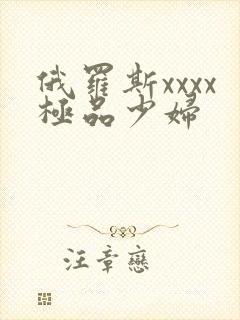 俄羅斯xxxx
極品少婦
汪章戀